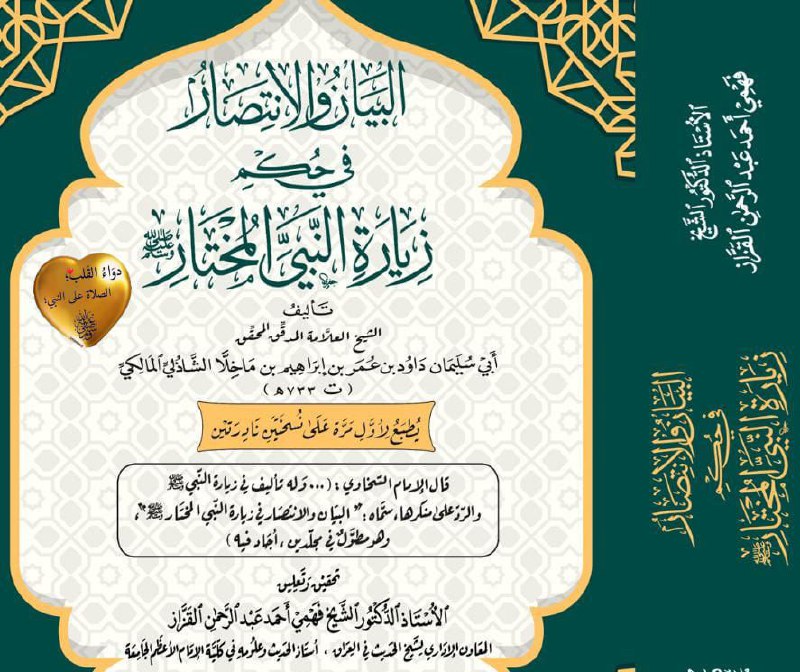 البَيَانُ وَالانْتِصَارُ
فِي حُكْمِ
زِيَارَةِ النَّبِيِّ المُخْتَارِ ﷺ
دوَاءُ القَلب؛
الصلاة على النبي؛
تأليف
الشيخ العلّامة المدقّق المحقق
أَبِي سُلَيمَان دَاوُد بن عُمَر بن إبرَاهِيم بن مَاخِلَّا الشَّاذُليِّ المَالِكِيِّ
(ت ٧٣٣هـ)
يُطبَعُ لِأَوَّلِ مَرَّة عَلَى نُسخَتَين نَادِرَتَين
قال الإمام السخاوي: (... وله تأليف في زيارة النبي ﷺ
والردّ على منكرها، سمّاه: "البيان والانتصار في زيارة النبي المختار ﷺ"،
وهو مطوّلٌ في مجلّدين، أجاد فيه)
تحقيق وتعليق
الأُسْتَاذ الدُّكتُور الشَّيخ فَهْمِي أَحمَد عَبد الرَّحمٰن القَزَّاز
المعَاون الإدَاري لشيخ الحديث في العِراق، أستاذ الحَديث وعلُومه في كلّيّة الإمَام الأعظَم الجَامِعَة
الأُسْتَاذ الدُّكتُور الشَّيخ
فَهْمِي أَحمَد عَبد الرَّحمٰن القَزَّاز
البَيَانُ وَالانْتِصَارُ
فِي حُكْمِ
زِيَارَةِ النَّبِيِّ المُخْتَارِ ﷺ